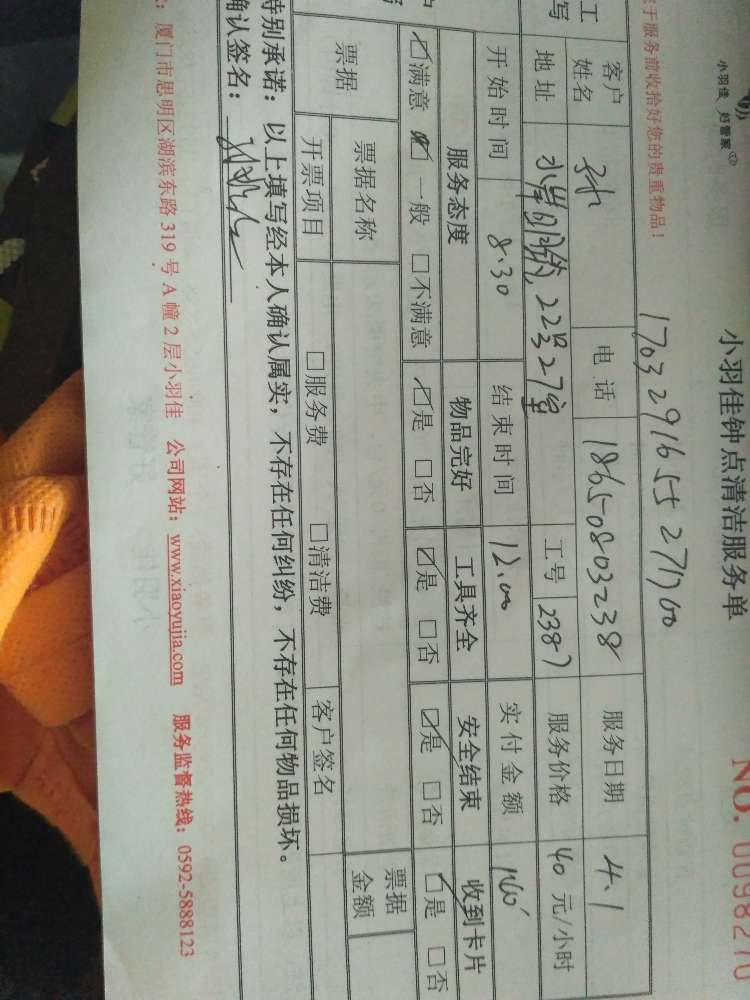 小羽佳 好管家
小羽佳钟点清洁服务单
NO. 0098270
于服务前收拾好您的贵重物品！
1703291655271700
工
写
客户姓名 电话 18650803238 服务日期 4.1
地址 22号327室 工号 2387 服务价格 40 元/小时
开始时间 8.30 结束时间 12.00 实付金额
服务态度 物品完好 工具齐全 安全结束 收到卡片
☑满意 ☑一般 □不满意 ☑是 □否 ☑是 □否 ☑是 □否 ☑是 □否
票据 票据名称 票据金额
开票项目 □服务费 □清洁费 客户签名
特别承诺：以上填写经本人确认属实，不存在任何纠纷，不存在任何物品损坏。
确认签名：
：厦门市思明区湖滨东路 319 号 A 幢 2 层小羽佳 公司网站：www.xiaoyujia.com 服务监督热线：0592-5888123